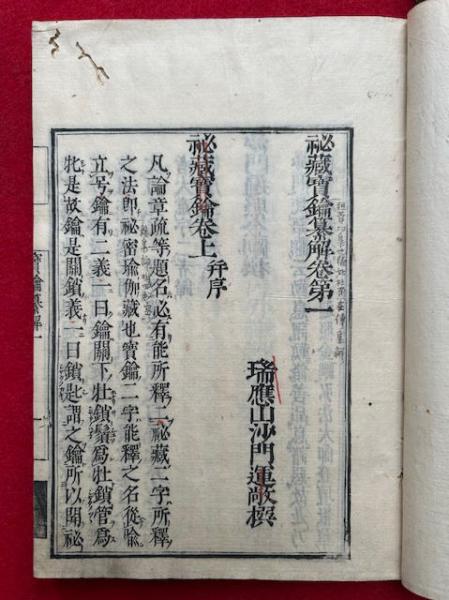 祕藏寶鑰纂解卷第一
瑞應山沙門運敞撰
祕藏寶鑰卷上 幷序
凡論章疏等題名必有能所釋二祕藏二字所釋
之法卽祕密瑜伽藏也寶鑰二字能釋之名從喩
立号鑰有二義一曰鑰關下牡鎖鬚爲牡鎖管爲
牝是故鑰是關鎖義一曰鎖匙謂之鑰所以開祕